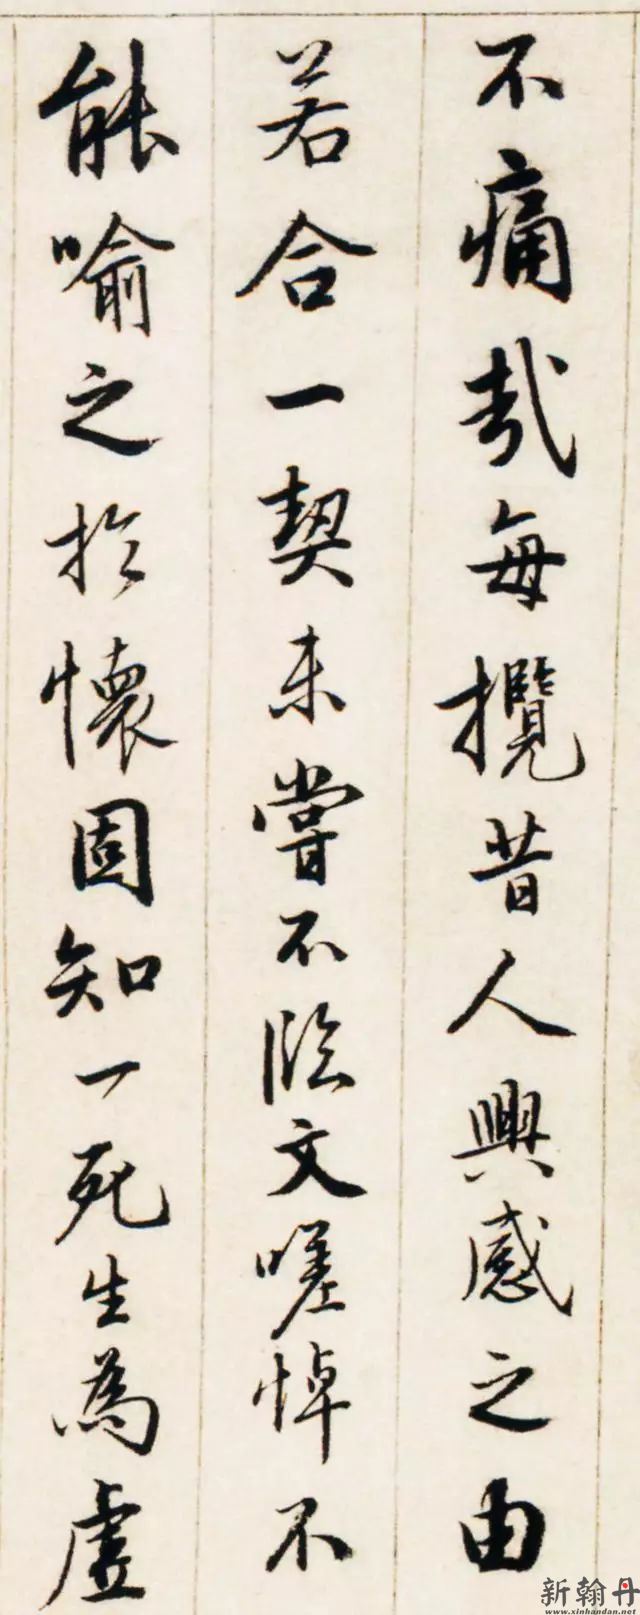 不痛哉每攬昔人興感之由
若合一契未嘗不臨文嗟悼不
能喻之於懷固知一死生為虛
新翰丹
www.xinhandan.net